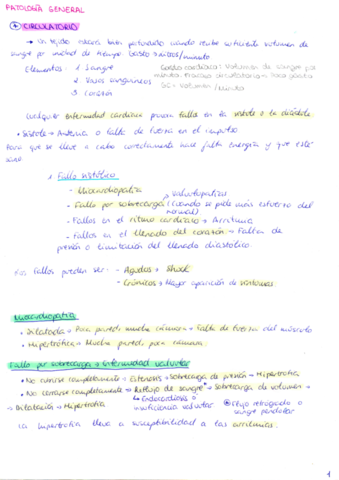 PATOLOGÍA GENERAL
CIRCULATORIO
→ Un tejido estará bien perfundido cuando recibe suficiente volumen de
sangre por unidad de tiempo. Gasto sistólico/minuto
Elementos: 1. Sangre
2. Vasos sanguíneos
3. Corazón
Gasto cardíaco: Volumen de sangre por
minuto.
volumen/minuto
Cualquier enfermedad cardíaca provoca fallo en la sístole o la diástole
• Sístole → Ausencia o falta de fuerza en el impulso
Para que se lleve a cabo correctamente hace falta energía y que esté
sano
1. Fallo sistólico
- Miocardiopatía
- Fallo por sobrecarga (cuando se pide más esfuerzo del
normal)
valvulopatías
- Fallos en el ritmo cardíaco → Arritmia
- Fallos en el llenado del corazón → Falta de
presión o limitación del llenado diastólico
Los fallos pueden ser: - Agudos → Shock
- Crónicos → Mayor aparición de síntomas
Miocardiopatía
• Dilatada → Poca pared, mucha cámara → Falta de fuerza del músculo
• Hipertrófica → Mucha pared, poca cámara
Fallo por sobrecarga → Enfermedad valvular
• No abrirse completamente → Estenosis → Sobrecarga de presión → Hipertrofia
• No cerrarse completamente → Reflujo de sangre → Sobrecarga de volumen →
→ Dilatación → Hipertrofia
Endocardiosis o
insuficiencia valvular
Flujo retrógrado o
sangre
La hipertrofia lleva a susceptibilidad a las arritmias.
1